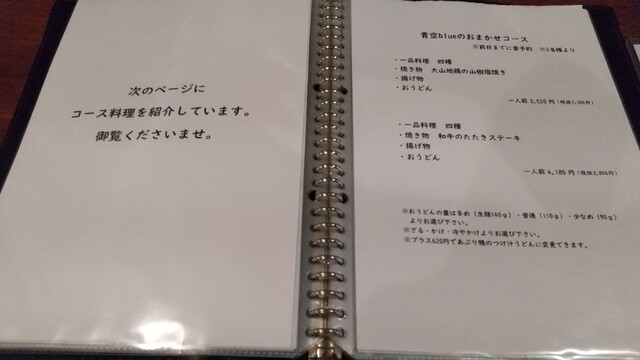 次のページに
コース料理を紹介しています。
御覧くださいませ。
青空blueのおまかせコース
※前日までに要予約 ※2名様より
・一品料理 四種
・焼き物 大山地鶏の山椒塩焼き
・揚げ物
・おうどん
一人前 3,520円(税抜3,200円)
・一品料理 四種
・焼き物 和牛のたたきステーキ
・揚げ物
・おうどん
一人前 4,180円(税抜3,800円)
※おうどんの量は多め(生麺140g)・普通(110g)・少なめ(90g)
よりお選び下さい。
※ざる・かけ・冷やかけよりお選び下さい。
※プラス620円であぶり鴨のつけ汁うどんに変更できます。